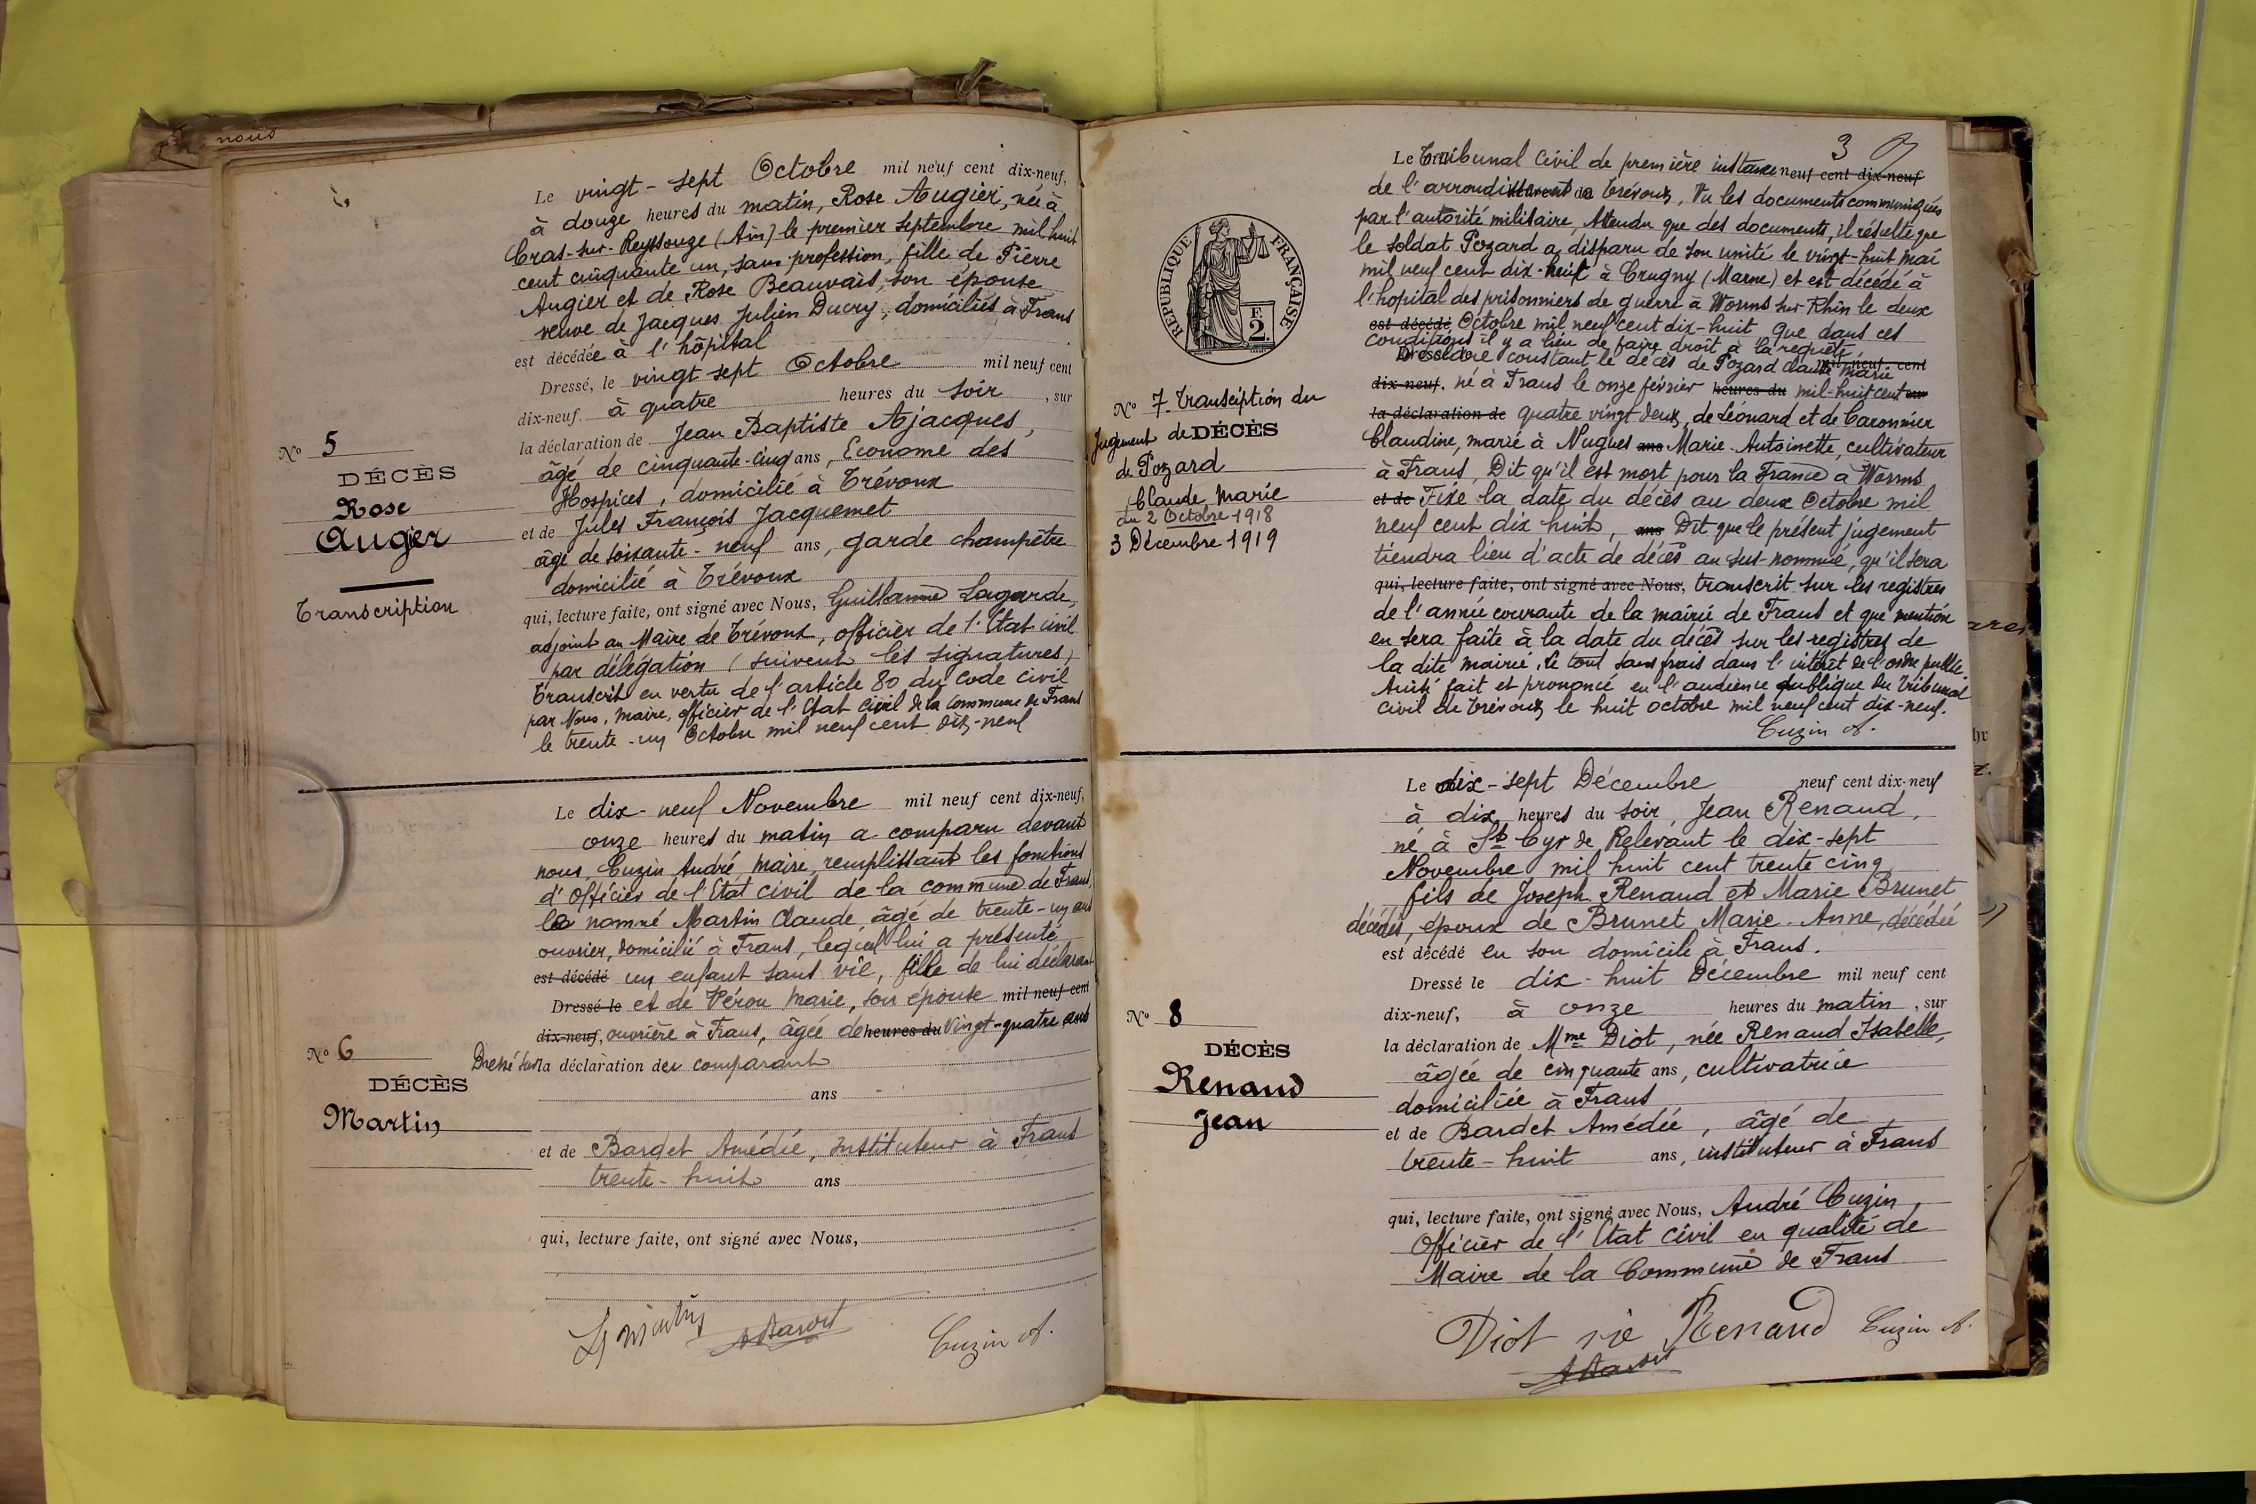 nous
Le vingt-sept Octobre mil neuf cent dix-neuf,
à douze heures du matin, Rose Augier, née à
Cras-sur-Reyssouze (Ain) le premier septembre mil huit
cent cinquante un, sans profession, fille de Pierre
Augier et de Rose Beauvais, son épouse
veuve de Jacques Julien Ducry, domiciliés à Frans
est décédée à l'hôpital
Dressé, le vingt sept Octobre mil neuf cent
dix-neuf. à quatre heures du soir, sur
la déclaration de Jean Baptiste Ajacques,
âgé de cinquante-cinq ans, Econome des
Hospices, domicilié à Trévoux
et de Jules François Jacquemet
âgé de soixante-neuf ans, garde champêtre
domicilié à Trévoux
qui, lecture faite, ont signé avec Nous, Guillaume Lagarde,
adjoint au Maire de Trévoux, officier de l'Etat civil
par délégation (suivent les signatures)
Transcrit en vertu de l'article 80 du Code civil
par Nous, Maire, officier de l'Etat civil de la Commune de Frans
le trente-un Octobre mil neuf cent dix-neuf
No 5
DÉCÈS
Rose
Augier
Transcription
Le dix-neuf Novembre mil neuf cent dix-neuf,
onze heures du matin a comparu devant
nous, Cuzin André, Maire, remplissant les fonctions
d'Officier de l'Etat civil de la commune de Frans,
le nommé Martin Claude, âgé de trente-un ans
ouvrier, domicilié à Frans, lequel lui a présenté
est décédé un enfant sans vie, fille de lui déclarant
Dressé le et de Pérou Marie, son épouse mil neuf cent
dix-neuf, ouvrière à Frans, âgée de heures du vingt-quatre ans
Dressé sur la déclaration du comparant
ans
et de Bardet Amédée, instituteur à Frans
trente-huit ans
qui, lecture faite, ont signé avec Nous,
No 6
DÉCÈS
Martin
Cuzin A.
3
Le Tribunal Civil de première instance neuf cent dix-neuf
de l'arrondissement de Trévoux, Vu les documents communiqués
par l'autorité militaire, Attendu que des documents, il résulte que
le soldat Pozard a disparu de son unité le vingt-huit Mai
mil neuf cent dix-huit à Crugny (Marne) et est décédé à
l'hôpital des prisonniers de guerre à Worms sur Rhin le deux
est décédé Octobre mil neuf cent dix-huit Que dans ces
conditions il y a lieu de faire droit à la requête
Déclare constant le décès de Pozard Claude Marie mil neuf cent
dix-neuf. né à Frans le onze février heures du mil-huit cent sur
la déclaration de quatre vingt deux, de Léonard et de Caronnier
Claudine, marié à Nugues ans Marie-Antoinette, cultivateur
à Frans, Dit qu'il est mort pour la France à Worms
et de Fixe la date du décès au deux Octobre mil
neuf cent dix huit, ans Dit que le présent jugement
tiendra lieu d'acte de décès au sus-nommé, qu'il sera
qui, lecture faite, ont signé avec Nous, transcrit sur les registres
de l'année courante de la mairie de Frans et que mention
en sera faite à la date du décès sur les registres de
la dite mairie, le tout sans frais dans l'intérêt de l'ordre public.
Ainsi fait et prononcé en l'audience publique du Tribunal
civil de Trévoux le huit octobre mil neuf cent dix-neuf.
Cuzin A.
RÉPUBLIQUE FRANÇAISE
F.
2.
No 7. Transciption du
Jugement de DÉCÈS
de Pozard
Claude Marie
du 2 Octobre 1918
3 Décembre 1919
Le dix-sept Décembre neuf cent dix-neuf
à dix heures du soir, Jean Renaud,
né à St Cyr de Relevant le dix-sept
Novembre mil huit cent trente cinq
fils de Joseph Renaud et Marie Brunet
décédés, époux de Brunet Marie-Anne, décédée
est décédé en son domicile à Frans.
Dressé le dix-huit Décembre mil neuf cent
dix-neuf, à onze heures du matin, sur
la déclaration de Mme Diot, née Renaud Isabelle,
âgée de cinquante ans, cultivatrice
domiciliée à Frans
et de Bardet Amédée, âgé de
trente-huit ans, instituteur à Frans
qui, lecture faite, ont signé avec Nous, André Cuzin,
Officier de l'Etat Civil en qualité de
Maire de la Commune de Frans
No 8
DÉCÈS
Renaud
Jean
Diot née Renaud Cuzin A.